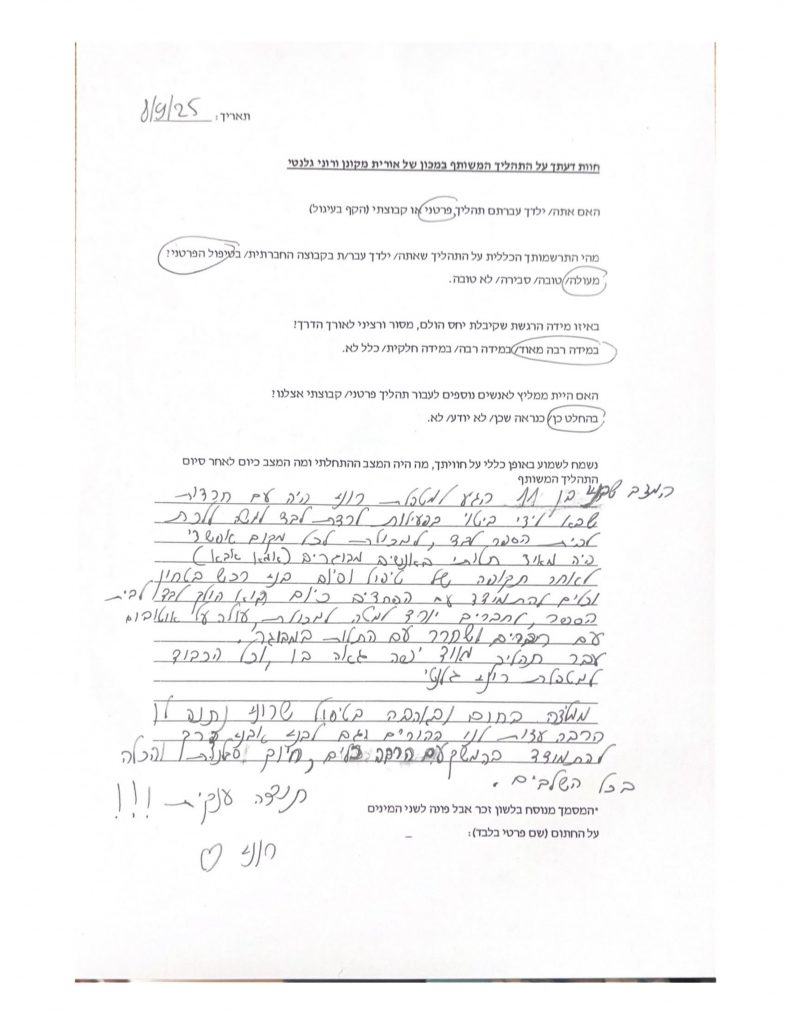 תאריך: 8/9/25
חוות דעתך על התהליך המשותף במכון של אורית מקונן ורוני גלנטי
האם אתה/ ילדך עברתם תהליך פרטני או קבוצתי (הקף בעיגול)
מהי התרשמותך הכללית על התהליך שאתה/ ילדך עבר/ת בקבוצה החברתית/ בטיפול הפרטני?
מעולה/ טובה/ סבירה/ לא טובה.
באיזו מידה הרגשת שקיבלת יחס הולם, מסור ורציני לאורך הדרך?
במידה רבה מאוד/ במידה רבה/ במידה חלקית/ כלל לא.
האם היית ממליץ לאנשים נוספים לעבור תהליך פרטני/ קבוצתי אצלנו?
בהחלט כן/ כנראה שכן/ לא יודע/ לא.
נשמח לשמוע באופן כללי על חוויתך, מה היה המצב ההתחלתי ומה המצב כיום לאחר סיום
התהליך המשותף
המצב שבני בן 11 הגיע למטפלת רוני היה עם חרדות
שבאו לידי ביטוי בפעילות לרדת לבד למטה ללכת
לבית הספר לבד, למכולת לכל מקום אפשרי
היה מאוד תלותי באנשים מבוגרים (אמא אבא)
לאחר תקופה של טיפול וסיום בני רכש בטחון
וכלים להתמודד עם הפחדים כיום הוא הולך לבד לבית
הספר, לחברים יורד למטה למכולת, עולה על אוטובוס
עם חברים ושחרר עם התלות במבוגר.
עבר תהליך מאוד יפה גאה בו, וכל הכבוד
למטפלת רוני גלנטי
ממליצה בחום ובאהבה בטיפול שרוני נתנה לו
הרבה עצות לנו ההורים וגם לבני איך
להתמודד בהמשך עם הרבה כלים, חיזוק והכלה
בכל השלבים.
תודה ענקית !!!
*המסמך מנוסח בלשון זכר אבל פונה לשני המינים
על החתום (שם פרטי בלבד):
רוני ♡